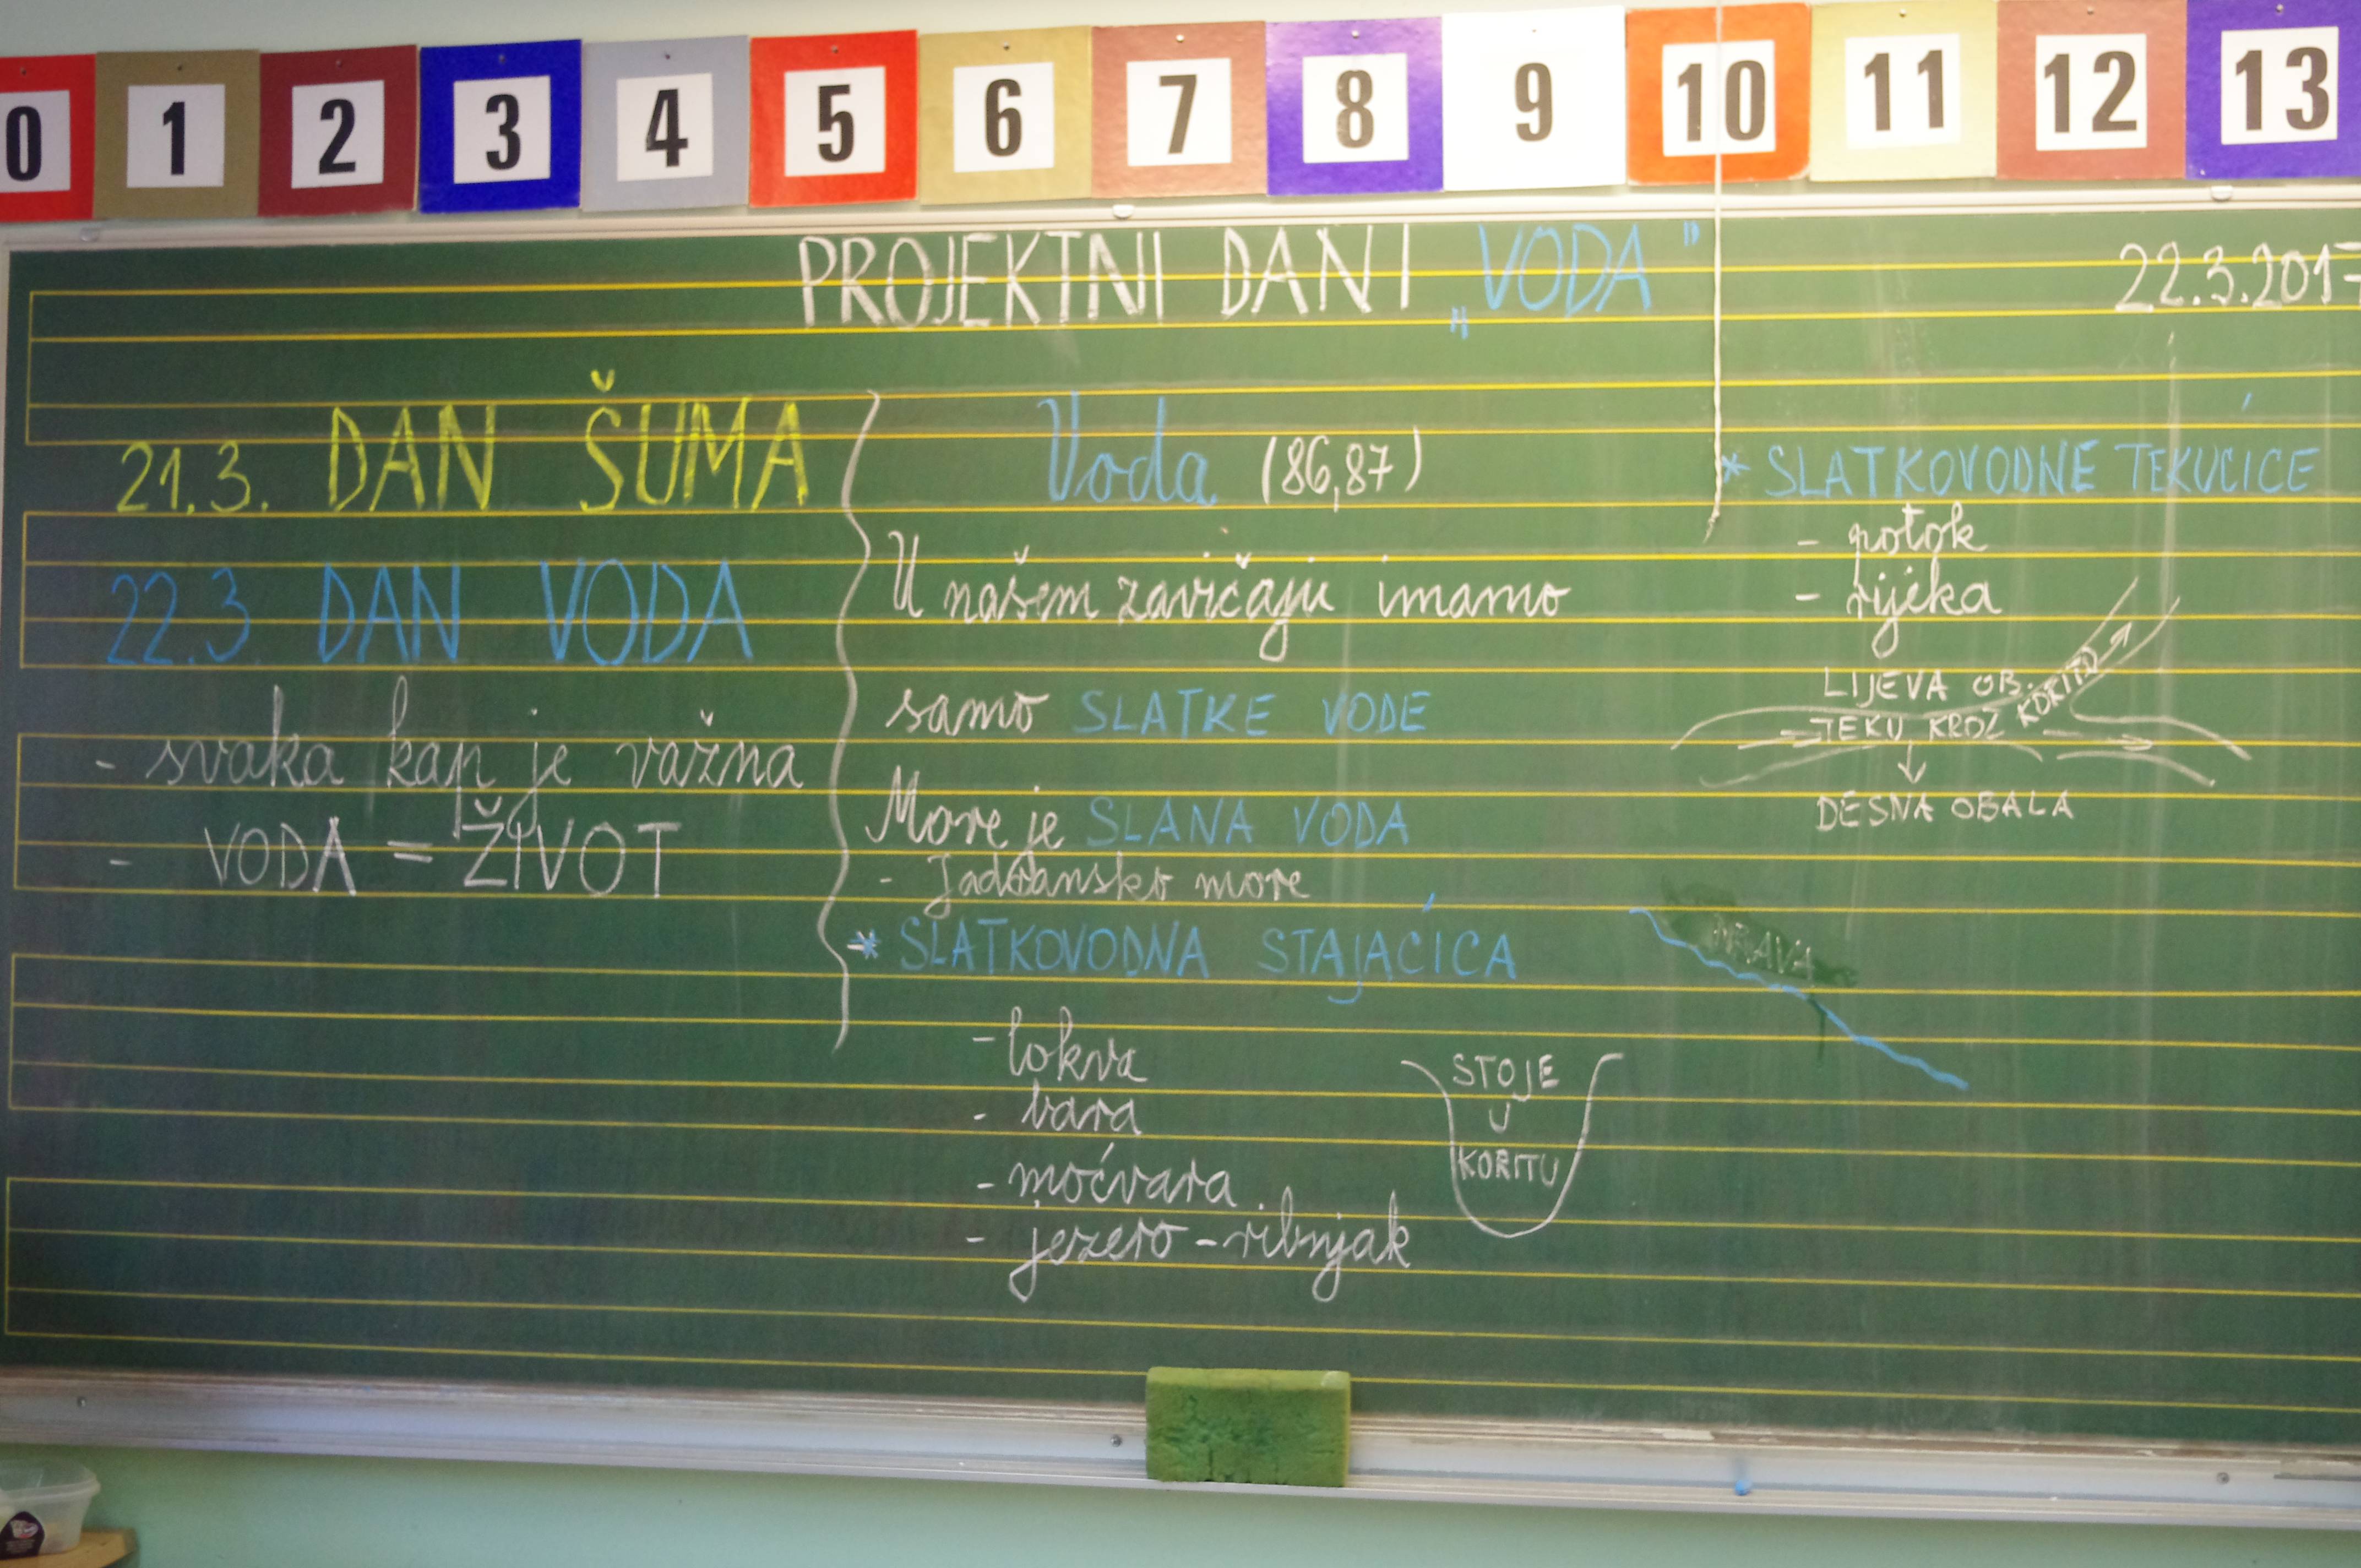 0 1 2 3 4 5 6 7 8 9 10 11 12 13
PROJEKTNI DANI „VODA”
22.3.2017
21.3. DAN ŠUMA
22.3. DAN VODA
- svaka kap je važna
- VODA = ŽIVOT
Voda (86,87)
U našem zavičaju imamo
samo SLATKE VODE
More je SLANA VODA
- Jadransko more
* SLATKOVODNA STAJAĆICA
- lokva
- bara
- močvara
- jezero - ribnjak
STOJE
U
KORITU
* SLATKOVODNE TEKUĆICE
- potok
- rijeka
LIJEVA OB.
TEKU KROZ KORITO
DESNA OBALA
DRAVA